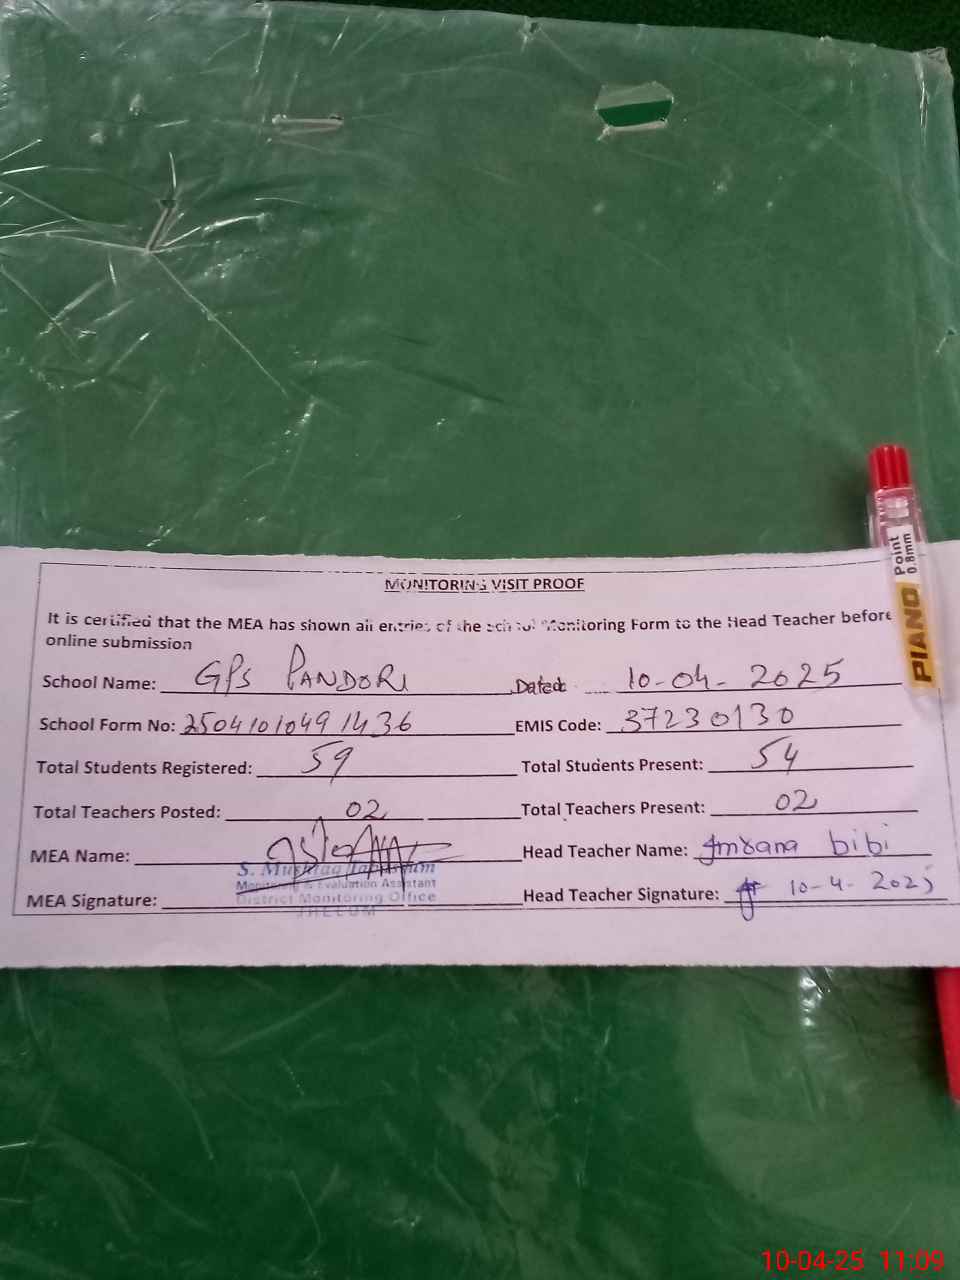 MONITORING VISIT PROOF
It is certified that the MEA has shown all entries of the School Monitoring Form to the Head Teacher before
online submission
School Name: GPS PANDORI Dated: 10-04-2025
School Form No: 2504101049 1436 EMIS Code: 37230130
Total Students Registered: 59 Total Students Present: 54
Total Teachers Posted: 02 Total Teachers Present: 02
MEA Name: Head Teacher Name: Imrana bibi
S. Mushtaq Tabassum
Monitoring & Evaluation Assistant
District Monitoring Office
JHELUM
MEA Signature: Head Teacher Signature: 10-4-2025
PIANO Point 0.8mm
10-04-25 11:09